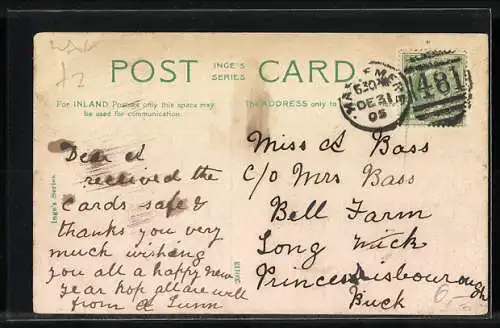 POST INGE'S SERIES CARD.
For INLAND Postage only this space may be used for communication.
The ADDRESS only to
HASLEMERE
630PM
DE 31
05
481
Dear A
received the
Cards safe &
thanks you very
much wishing
you all a happy new
year hop all are will
from A Lunn
Miss A Bass
C/o Mrs Bass
Bell Farm
Long Wick
Princes Risbourough
Buck
Inge's Series.